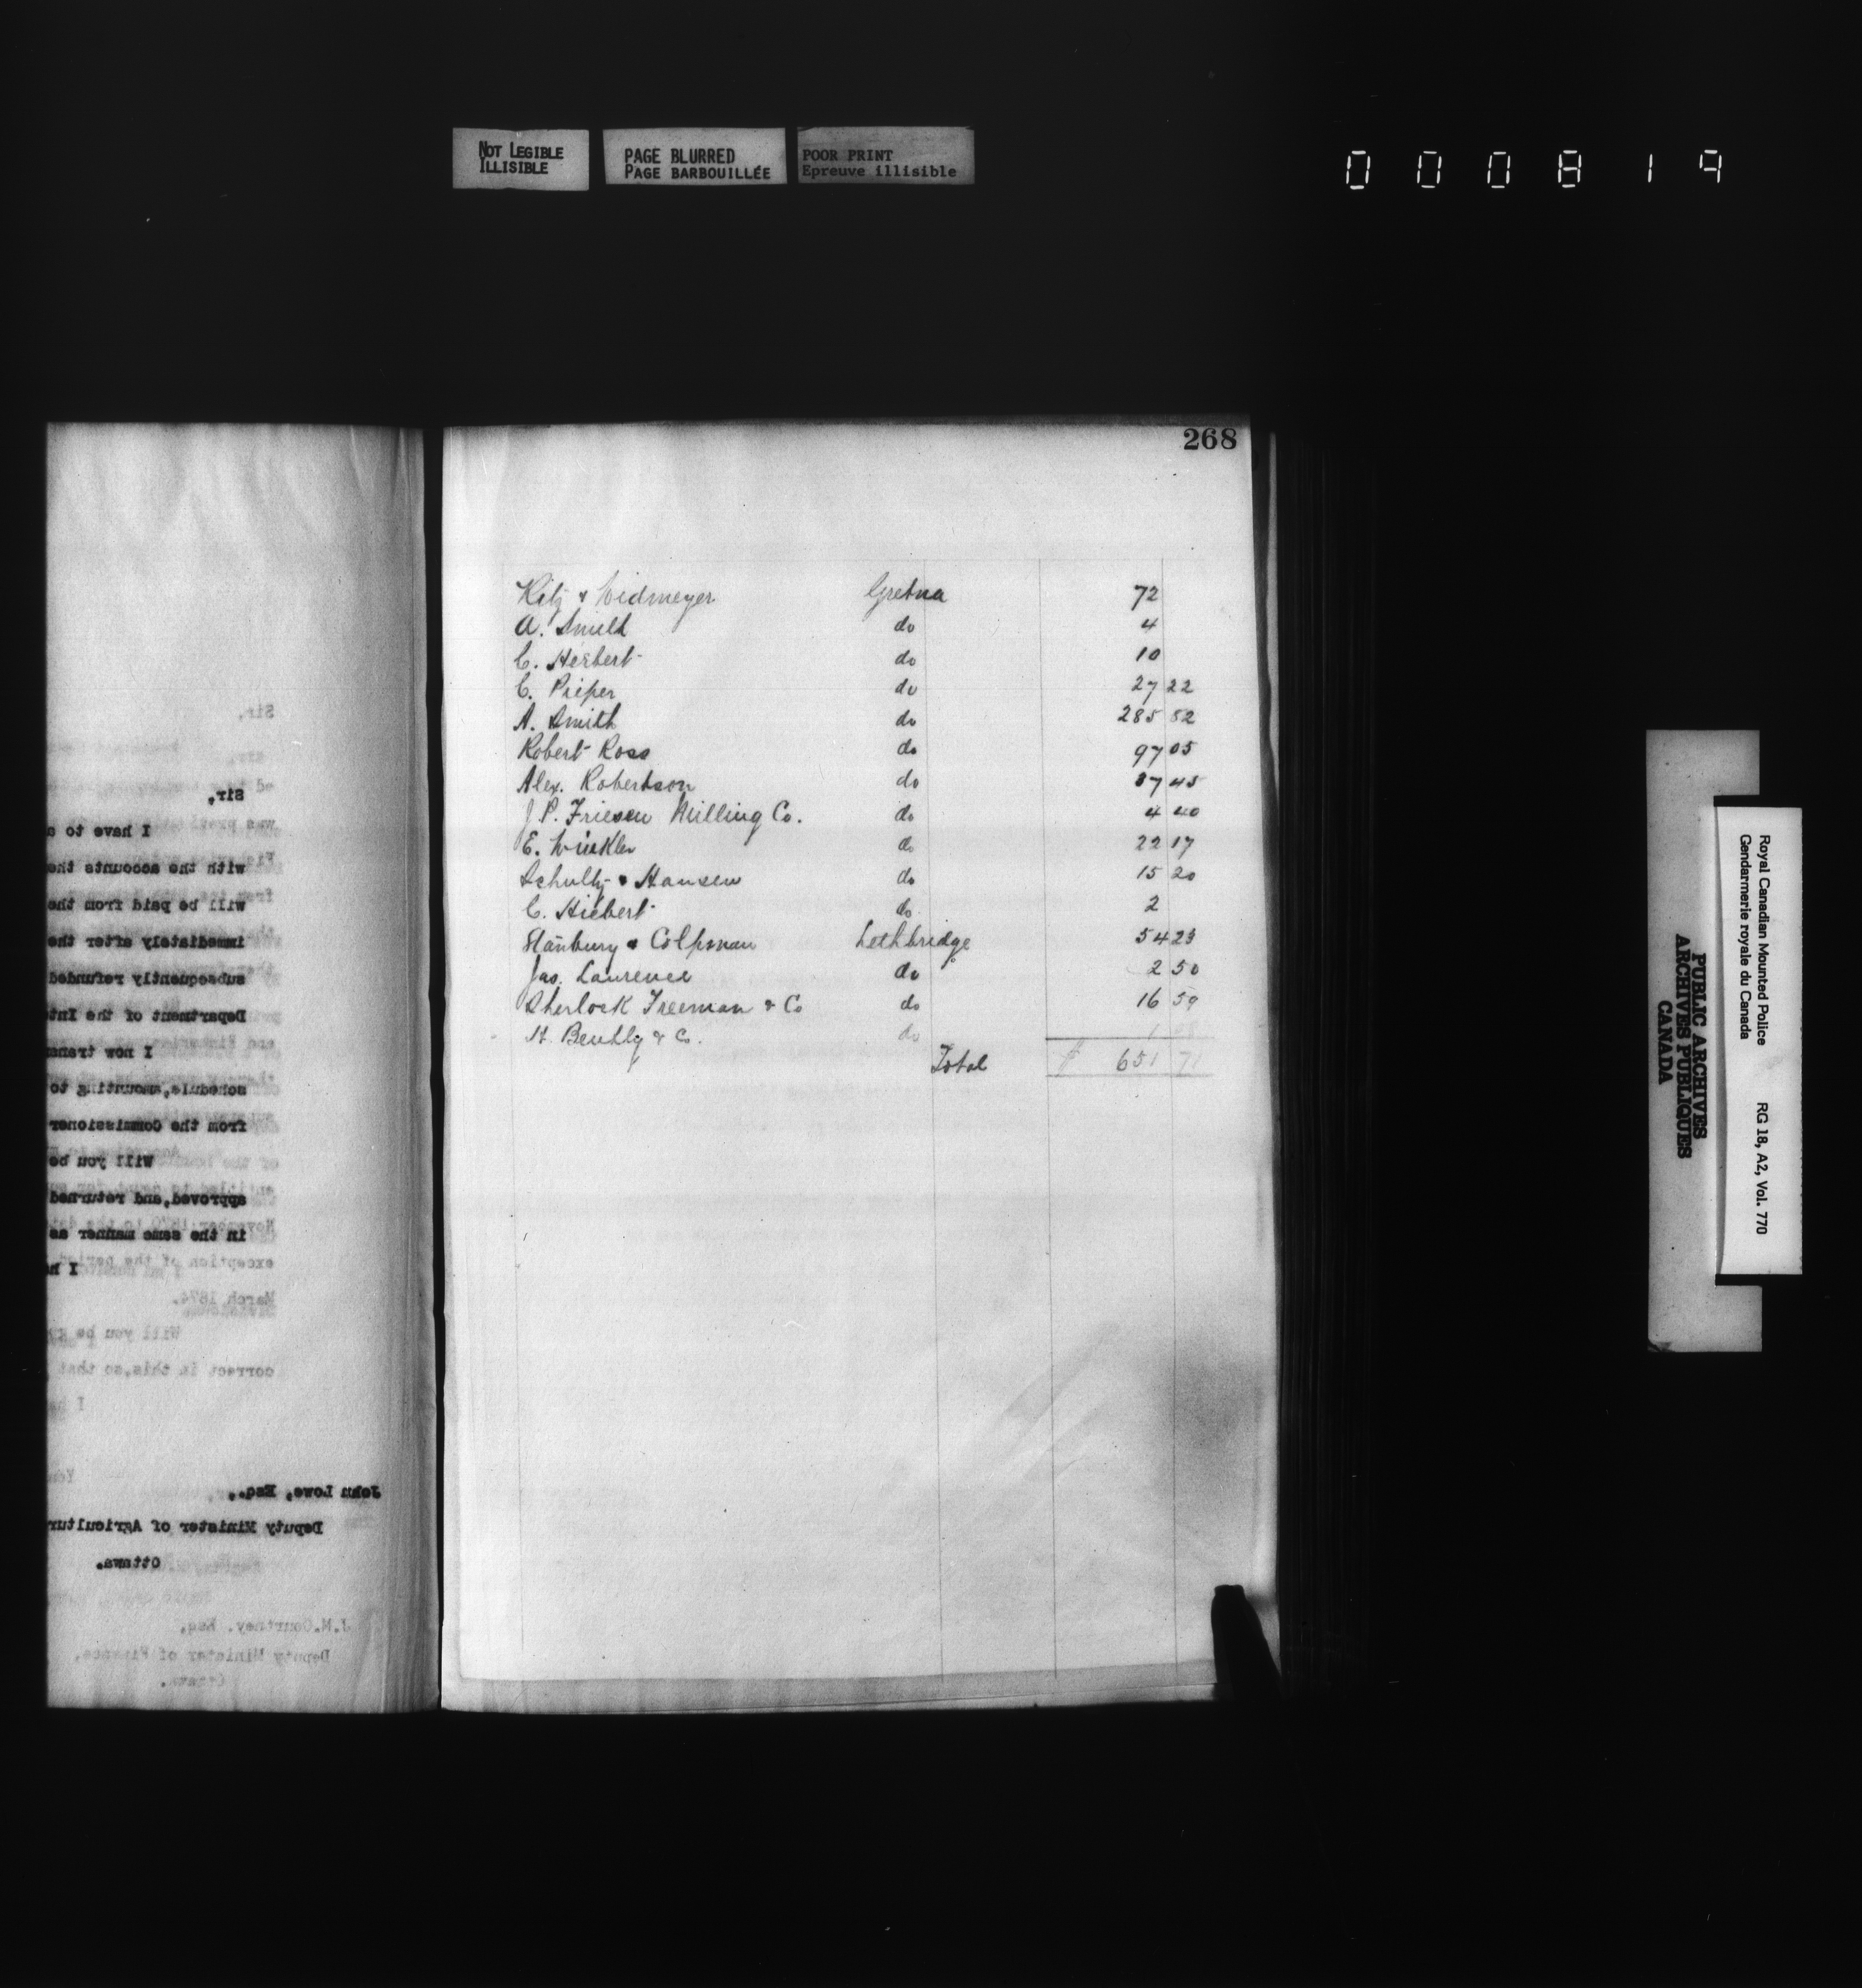 NOT LEGIBLE
ILLISIBLE
PAGE BLURRED
PAGE BARBOUILLÉE
POOR PRINT
Epreuve illisible
000819
Sir,
I have to
with the accounts the
will be paid from the
immediately after the
subsequently refunded
Department of the Int
I now trans
schedule, amounting to
from the Commissioner
Will you be
approved, and returned
in the same manner as
exception of the period
March 1874.
Will you be
correct in this, so that
John Lowe, Esq.,
Deputy Minister of Agricultur
Ottawa.
J.M.Courtney. Esq,
Deputy Minister of Finance,
268
& Widmeyer Gretna 72
A. do 4
C. Herbert do 10
C. Pieper do 27 22
A. Smith do 285 52
Robert Ross do 97 05
Alex. Robertson do 37 45
J. P. Friesen Milling Co. do 4 40
E. Winkler do 22 17
Schultz & Hansen do 15 20
C. Hiebert do 2
Stanbury & Colpman Lethbridge 54 23
Jas. Laurence do 2 50
Sherlock Freeman & Co do 16 59
H. Bently & C. do 1 38
Total $ 651 71
Royal Canadian Mounted Police
Gendarmerie royale du Canada
RG 18, A2, Vol. 770
PUBLIC ARCHIVES
ARCHIVES PUBLIQUES
CANADA